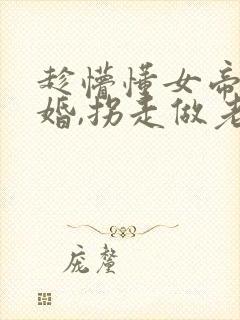 趁懵懂女帝
婚,拐走做老
庞厘